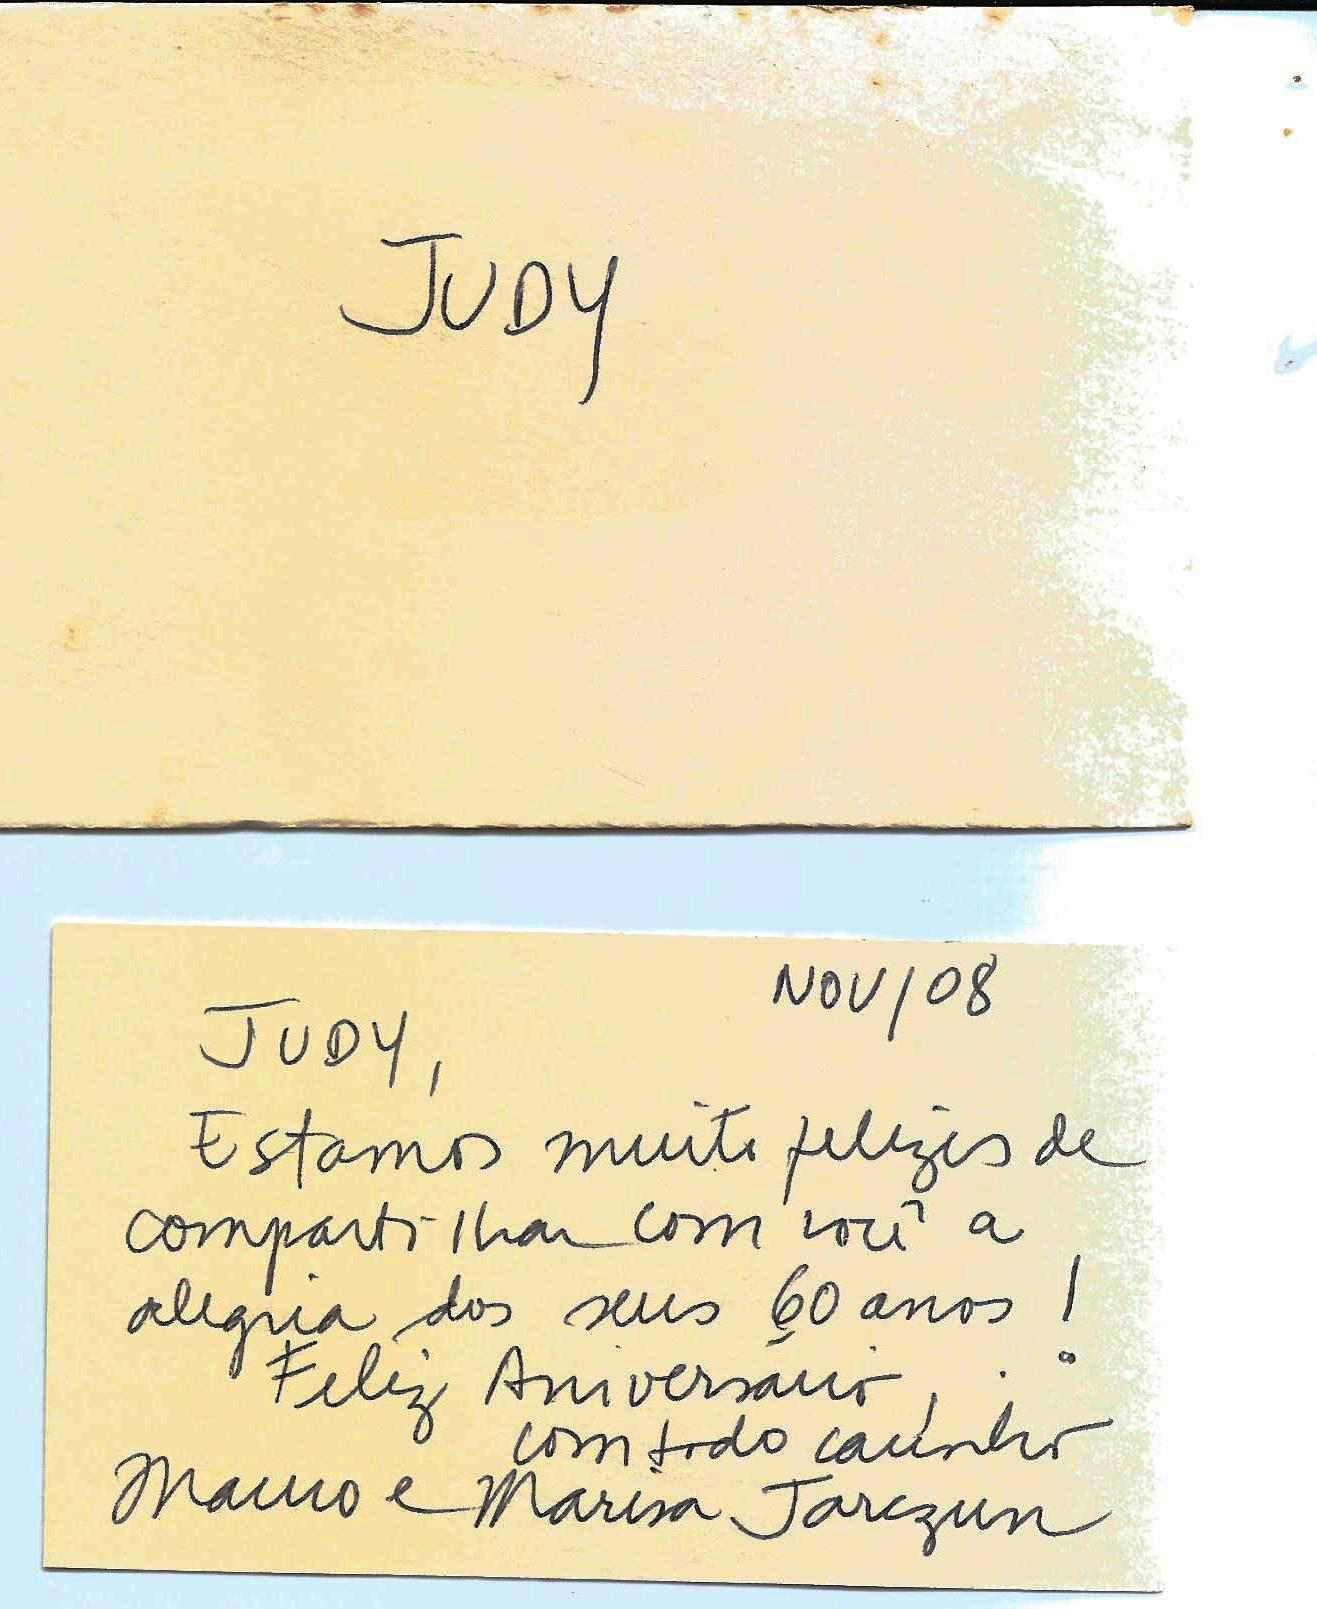 JUDY
NOV/08
JUDY,
Estamos muito felizes de
compartilhar com você a
alegria dos seus 60 anos!
Feliz Aniversário,
com todo carinho
Mauro e Marisa Jarczun